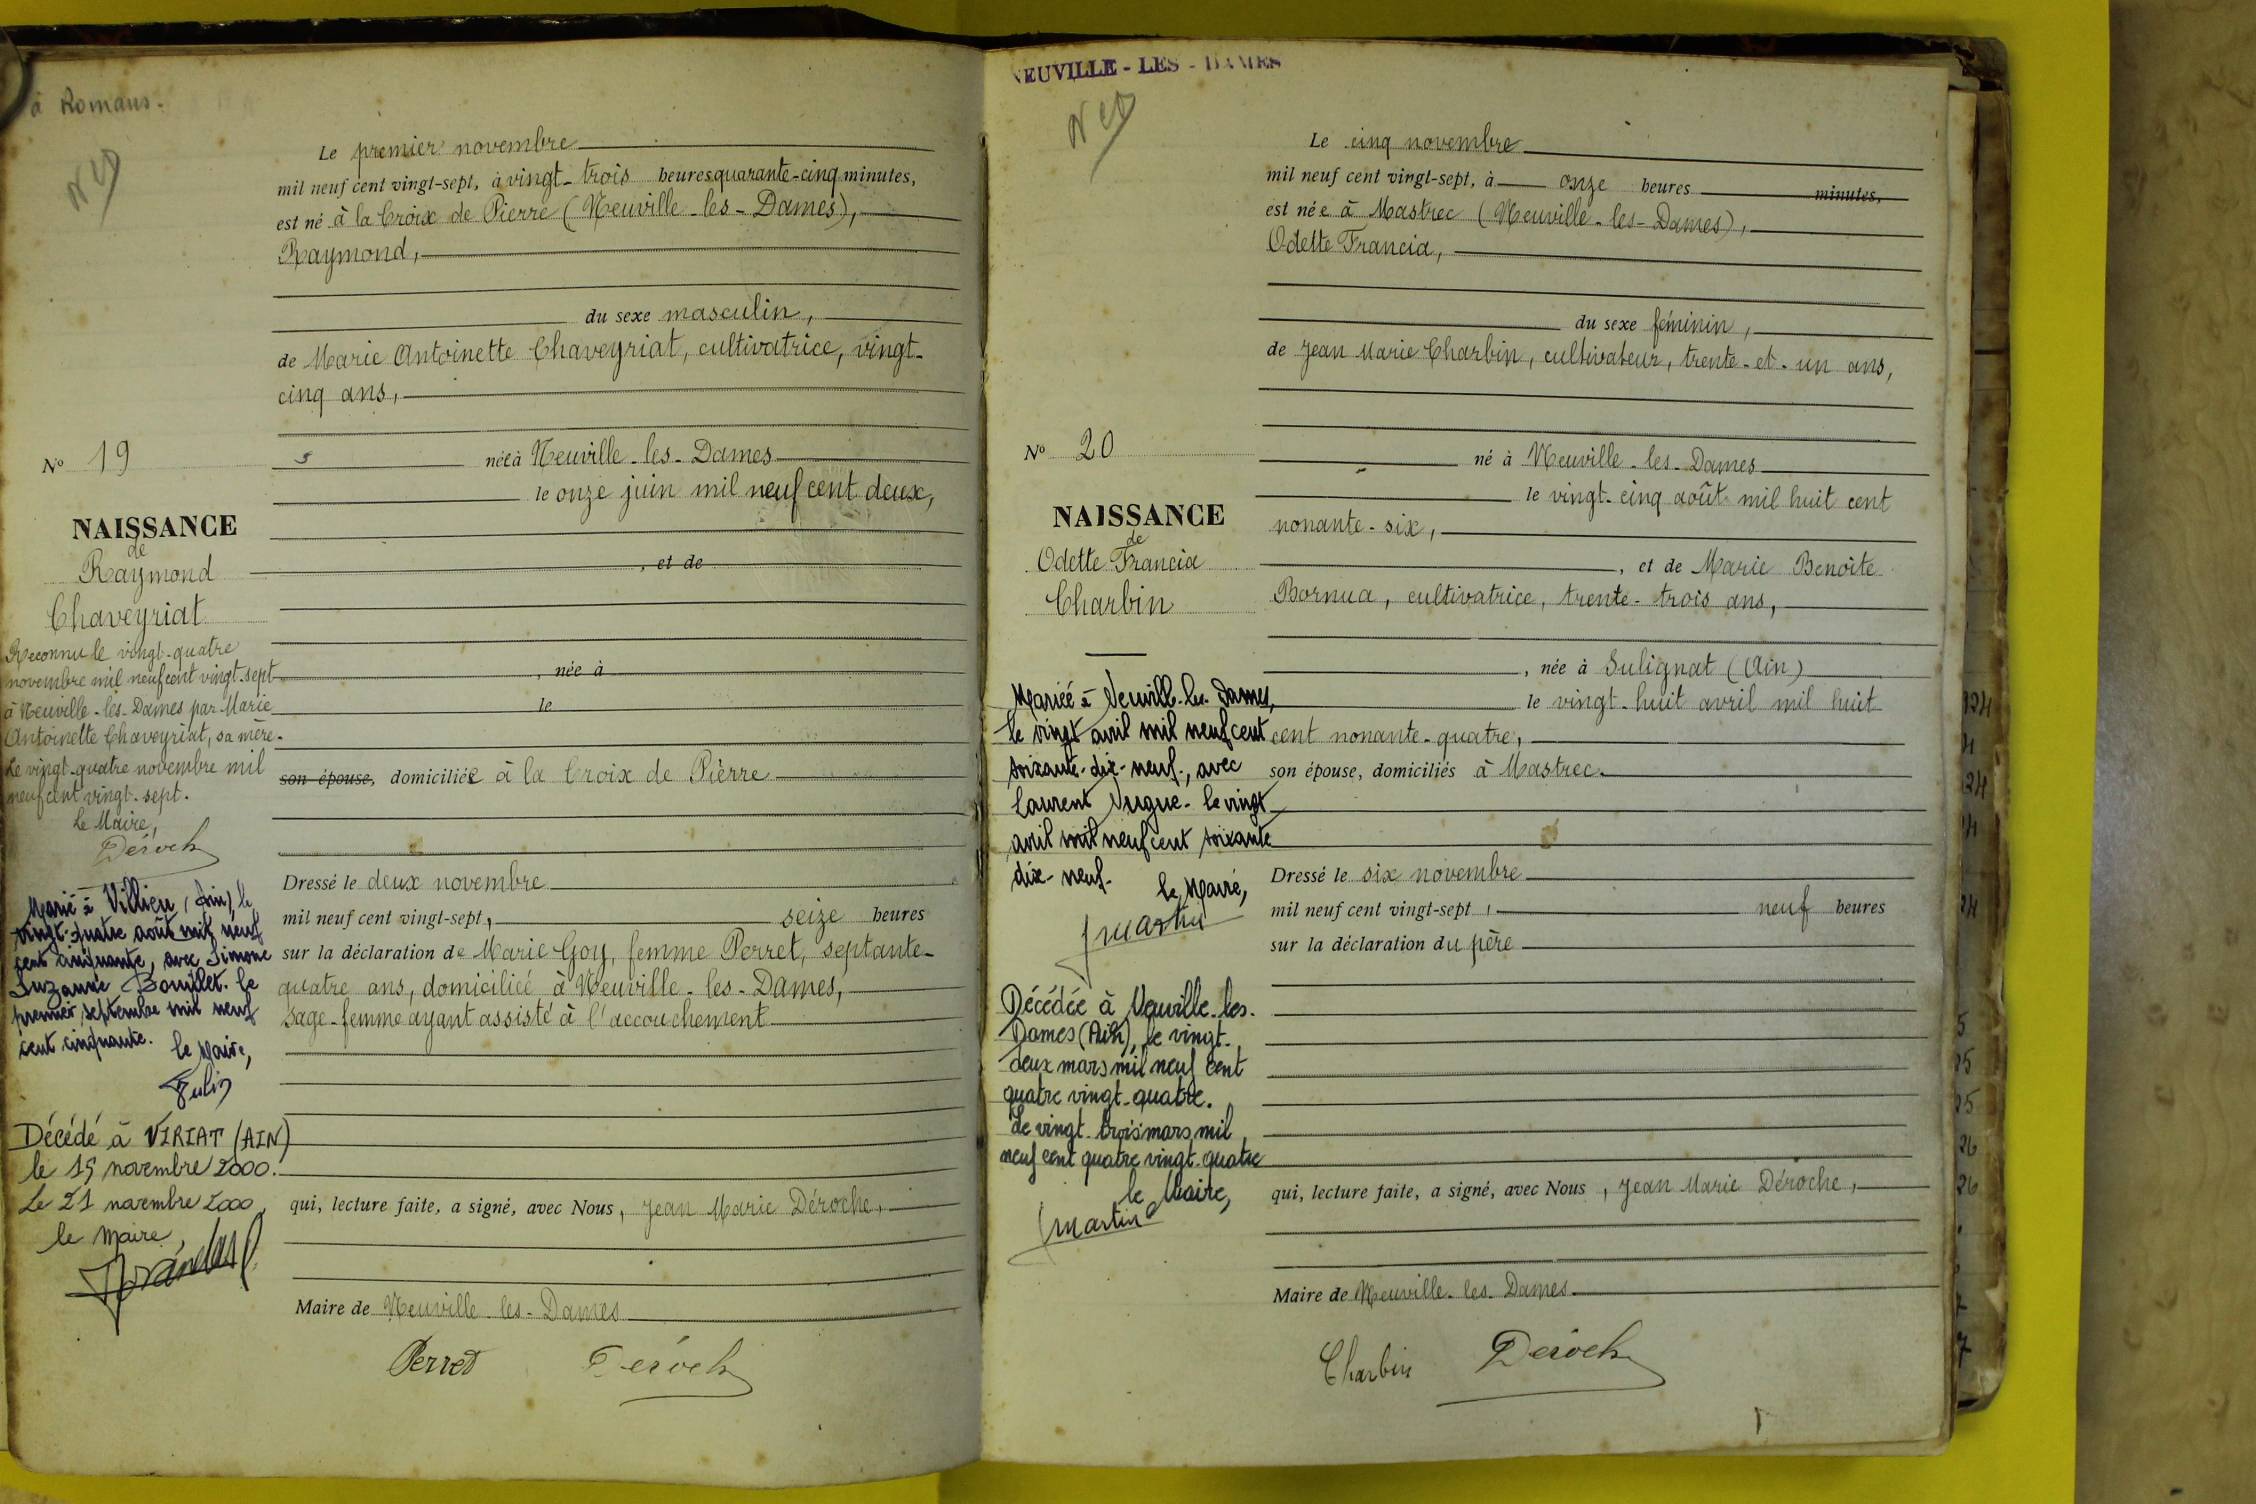 à Romans.
Le premier novembre
mil neuf cent vingt-sept, à vingt-trois heures quarante-cinq minutes,
est né à la Croix de Pierre (Neuville-les-Dames),
Raymond,
du sexe masculin,
de Marie Antoinette Chaveyriat, cultivatrice, vingt-
cinq ans,
née à Neuville-les-Dames
le onze juin mil neuf cent deux,
, et de
, née à
le
son épouse, domiciliée à la Croix de Pierre
Dressé le deux novembre
mil neuf cent vingt-sept, seize heures
sur la déclaration de Marie Goy, femme Perret, septante-
quatre ans, domiciliée à Neuville-les-Dames,
sage-femme ayant assisté à l'accouchement
qui, lecture faite, a signé, avec Nous, Jean Marie Déroche,
Maire de Neuville-les-Dames
Perret Déroch
No 19
NAISSANCE
de
Raymond
Chaveyriat
Reconnu le vingt-quatre
novembre mil neuf cent vingt-sept
à Neuville-les-Dames par Marie
Antoinette Chaveyriat, sa mère.
Le vingt-quatre novembre mil
neuf cent vingt-sept.
Le Maire,
Déroch
Marié à Villieu (Ain), le
vingt-quatre août mil neuf
cent cinquante, avec Simone
Suzanne Bouillet. le
premier septembre mil neuf
cent cinquante.
le Maire,
Décédé à VIRIAT (AIN)
le 19 novembre 2000.
Le 21 novembre 2000,
le Maire,
NEUVILLE-LES-DAMES
Le cinq novembre
mil neuf cent vingt-sept, à onze heures minutes,
est née à Mastrec (Neuville-les-Dames),
Odette Francia,
du sexe féminin,
de Jean Marie Charbin, cultivateur, trente-et-un ans,
né à Neuville-les-Dames
le vingt-cinq août mil huit cent
nonante-six,
, et de Marie Benoîte
Bornua, cultivatrice, trente-trois ans,
, née à Sulignat (Ain)
le vingt-huit avril mil huit
cent nonante-quatre,
son épouse, domiciliés à Mastrec.
Dressé le six novembre
mil neuf cent vingt-sept, neuf heures
sur la déclaration du père
qui, lecture faite, a signé, avec Nous, Jean Marie Déroche,
Maire de Neuville-les-Dames
Charbin Déroch
No 20
NAISSANCE
de
Odette Francia
Charbin
Mariée à Neuville-les-Dames,
le vingt avril mil neuf cent
soixante-dix-neuf, avec
Laurent Nugue. le vingt
avril mil neuf cent soixante
dix-neuf.
le Maire,
J Martin
Décédée à Neuville-les-
Dames (Ain), le vingt-
deux mars mil neuf cent
quatre vingt-quatre.
Le vingt-trois mars mil
neuf cent quatre vingt-quatre
le Maire,
J Martin
124
24
24
5
25
25
26
26
7
7